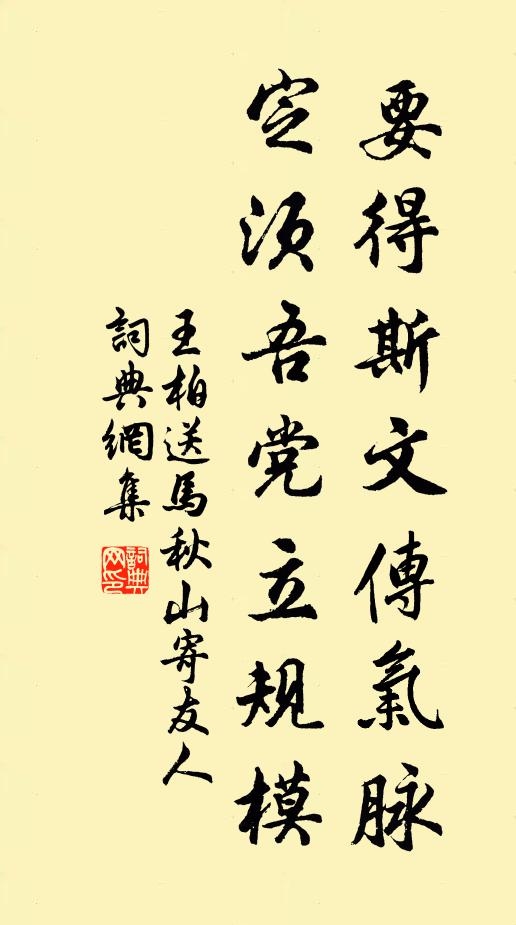 要得斯文傳氣脉
定須吾党立規模
王柏送馬秋山寄友人
詞典網集
詞典網印